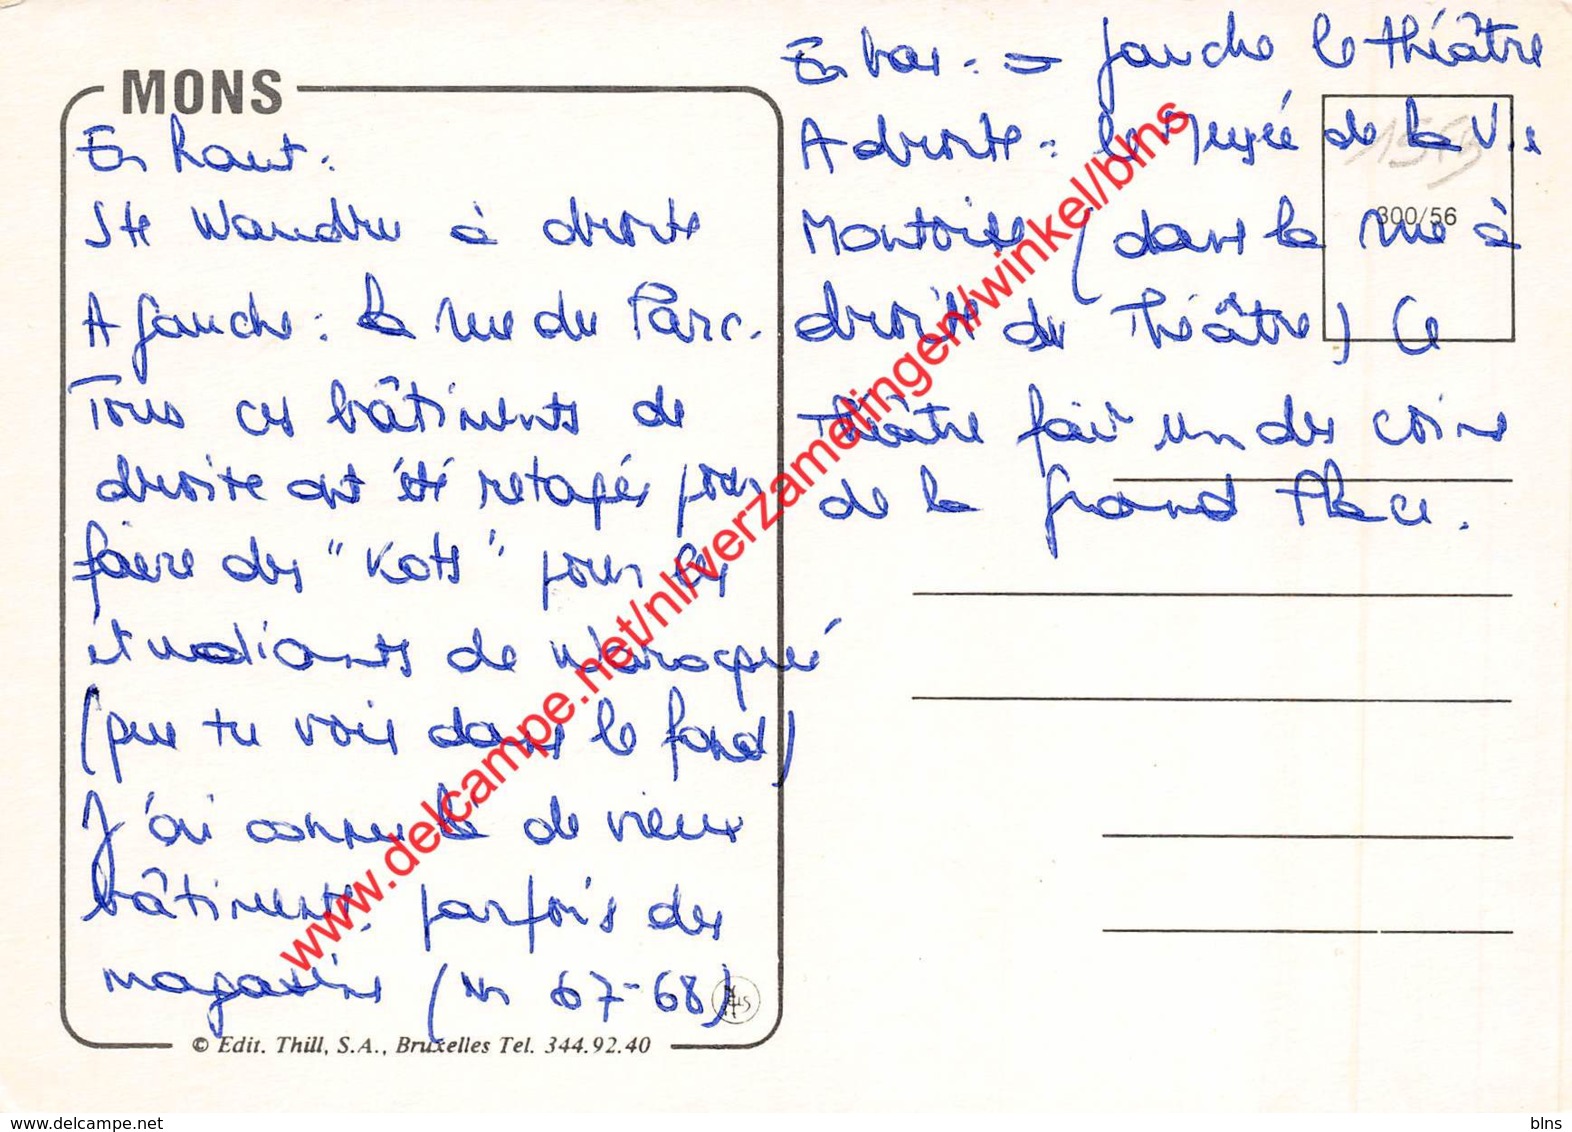 MONS
En haut :
Ste Waudru à droite
A gauche : la rue du Parc.
Tous ces bâtiments de
droite ont été retapés pour
faire des "Kots" pour les
étudiants de Warocqué
(que tu vois dans le fond)
J'ai connu là de vieux
bâtiments, parfois des
magasins (en 67-68)
© Edit. Thill, S.A., Bruxelles Tel. 344.92.40
En bas : gauche le théâtre
A droite : le Musée de la Vie
Montoise (dans la rue à
droite du Théâtre) Ce
théâtre fait un des coins
de la Grand Place.
300/56
www.delcampe.net/nl/verzamelingen/winkel/blns
www.delcampe.net
blns